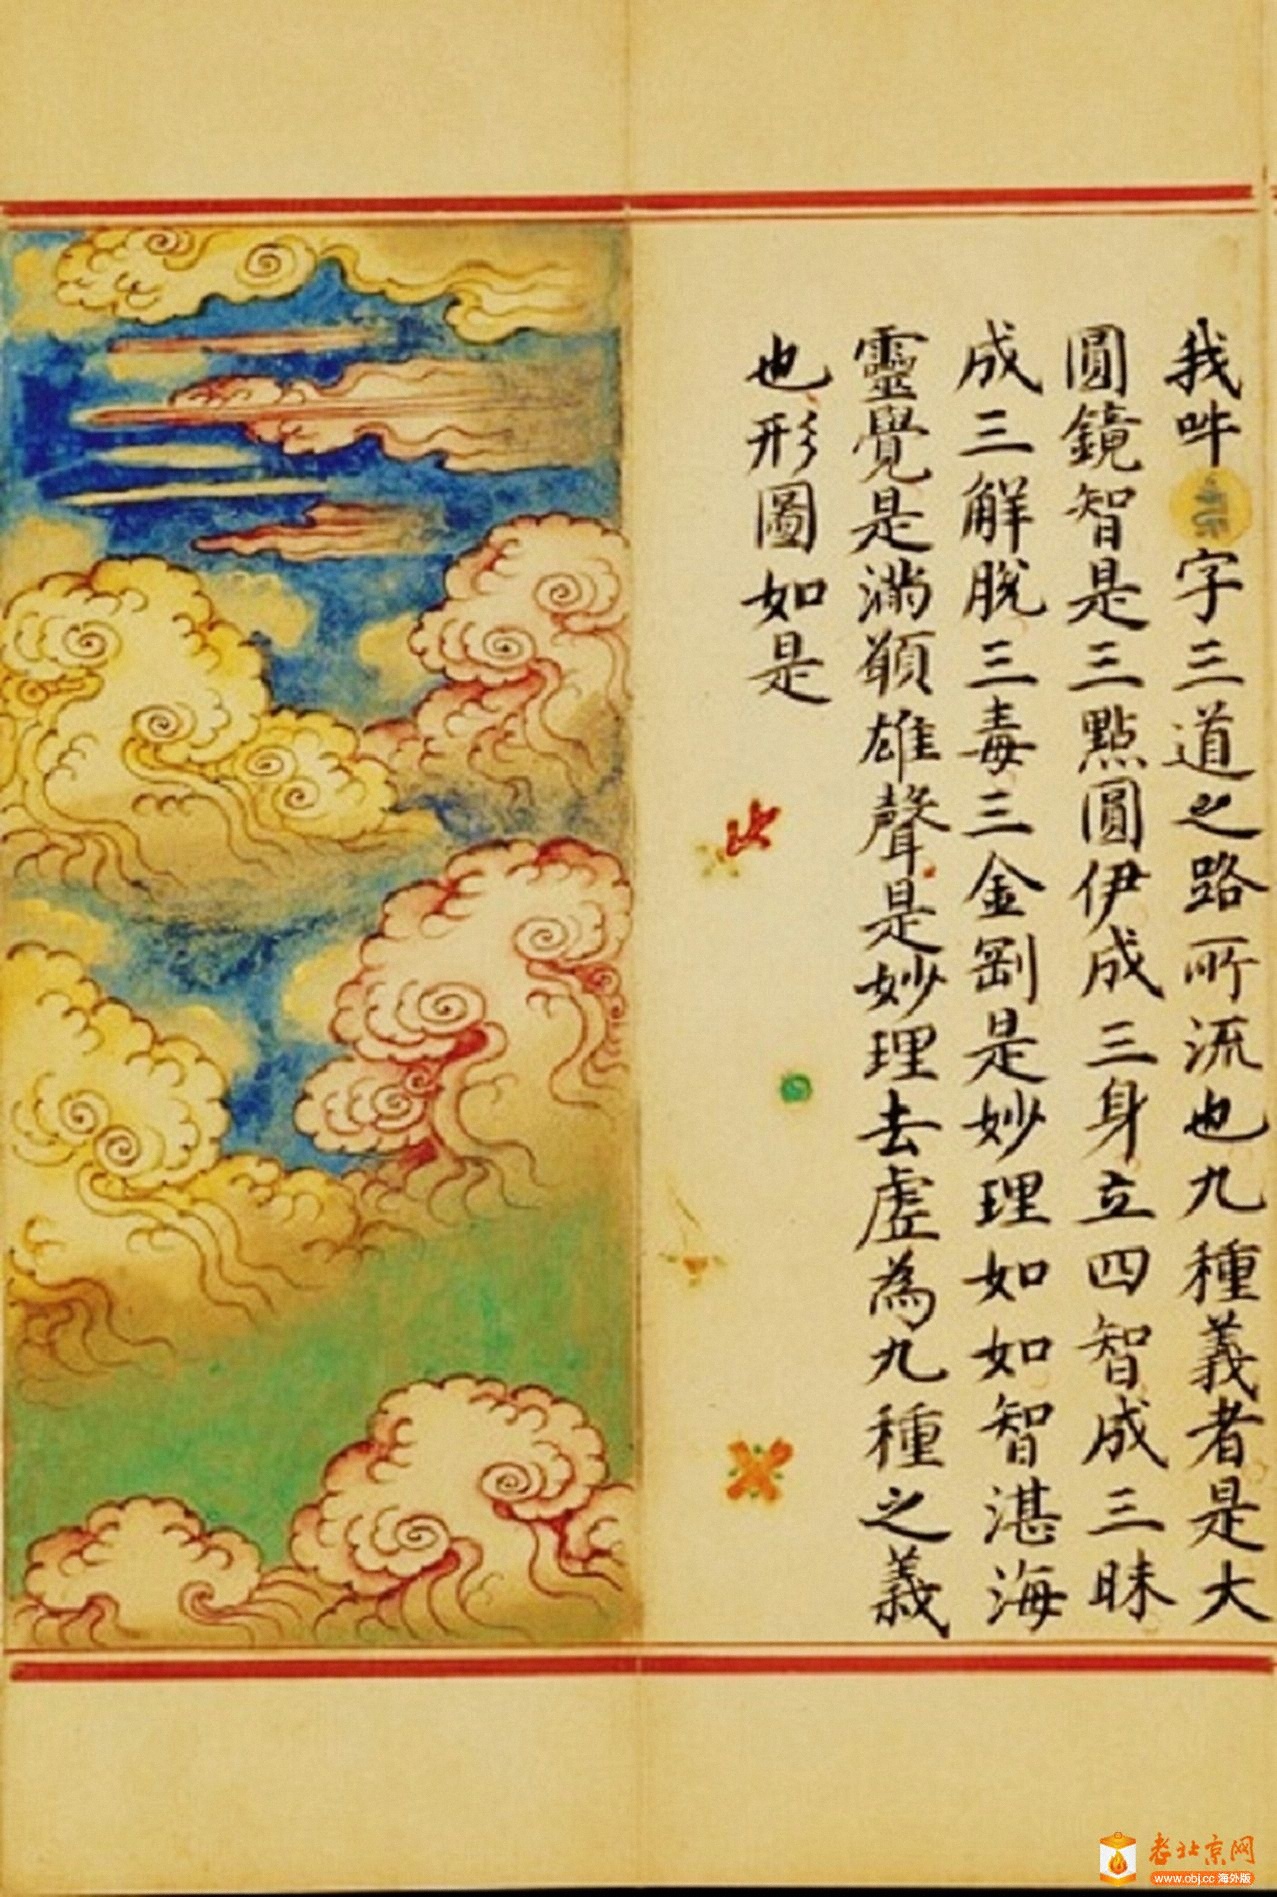 我吽字三道之路所流也九種義者是大
圓鏡智是三點圓伊成三身立四智成三昧
成三解脫三毒三金剛是妙理如如智湛海
靈覺是滿願雄聲是妙理去虛為九種之義
也形圖如是
老北京网
www.obj.cc 海外版